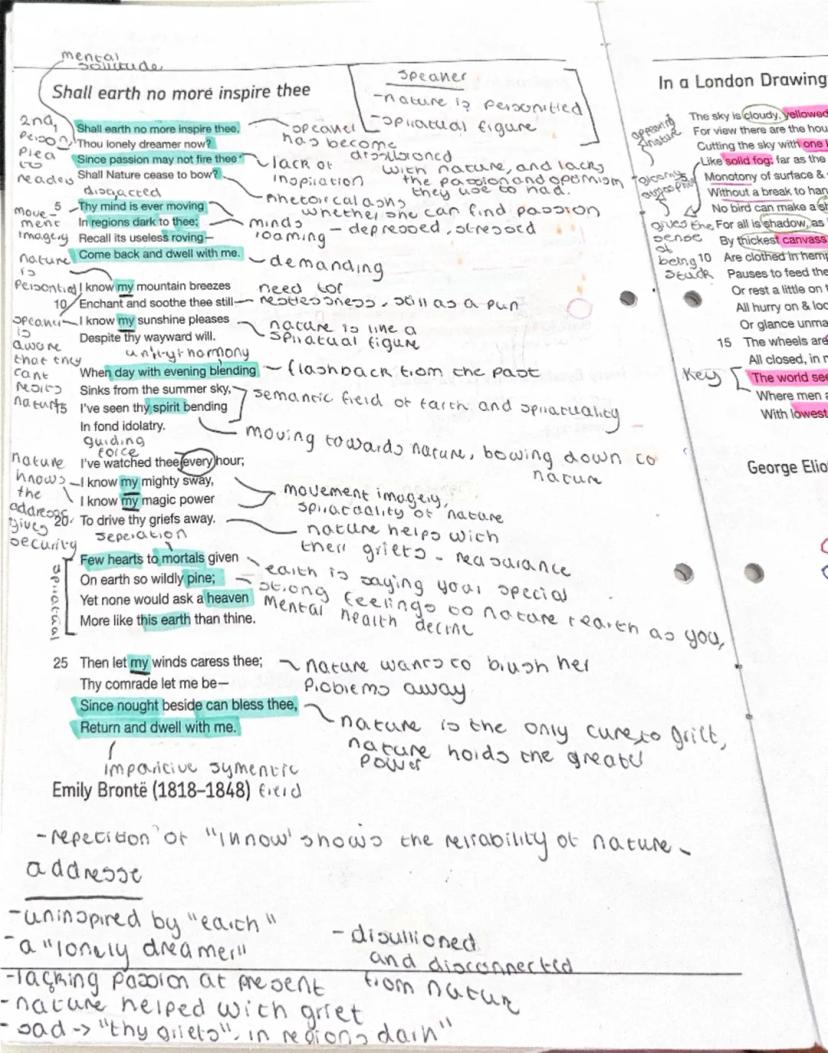 mental
solitude
Shall earth no more inspire thee
speaker
-nature is personified
-spiratual figure
2nd,
person
plea
to
reader
Shall earth no more inspire thee,
Thou lonely dreamer now?
Since passion may not fire thee
Shall Nature cease to bow?
speaker
has become
disullioned
with nature, and lacks
the passion and optomism
they use to had.
lack of
inspiration
rhetorical asks
whether she can find passion
disjacted
5 Thy mind is ever moving
In regions dark to thee;
Recall its useless roving—
Come back and dwell with me.
move-
ment
imagery
minds
roaming
- depressed, stressed
demanding
nature
is
personfied
I know my mountain breezes
10 Enchant and soothe thee still—
I know my sunshine pleases
Despite thy wayward will.
need for
restlessness, still as a pun
nature is like a
spiratual figure
speaker
is
aware
that they
cant
resits
nature
unity/harmony
When day with evening blending
Sinks from the summer sky,
15 I've seen thy spirit bending
In fond idolatry.
flashback from the past
semantic field of faith and spiratuality
moving towards nature, bowing down to
nature
guiding
force
I've watched thee every hour;
I know my mighty sway,
I know my magic power
20 To drive thy griefs away.
nature
knows
the
addresse
gives
security
movement imagery,
spiratuality of nature
nature helps with
their griefs - reasurance
seperation
Few hearts to mortals given
On earth so wildly pine;
Yet none would ask a heaven
More like this earth than thine.
spiratual
earth is saying your special
strong feelings to nature / earth as you,
mental health decline
25 Then let my winds caress thee;
Thy comrade let me be—
Since nought beside can bless thee,
Return and dwell with me.
nature wants to brush her
problems away
nature is the only cure to grift,
nature holds the greater
power
imparitive symentic
field
Emily Brontë (1818–1848)
-repetition of "I know" shows the reliability of nature
addresse
-uninspired by "earth"
-a "lonely dreamer"
-lacking passion at present
-nature helped with grief
-sad -> "thy griefs", in regions dark"
- disullioned
and disconnected
from natur
In a London Drawing
The sky is cloudy, yellowed
For view there are the hou
Cutting the sky with one l
Like solid fog: far as the
Monotony of surface &
Without a break to han
No bird can make a sh
For all is shadow, as
By thickest canvass
10 Are clothed in hemp
Pauses to feed the
Or rest a little on
All hurry on & lo
Or glance unma
15 The wheels are
All closed, in m
The world see
Where men a
With lowest
gives the
sense
of
being
stuck
Key
George Elio